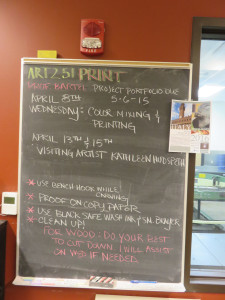 ART 251 PRINT
PROF. BARTH PROJECT PORTFOLIO DUE
5-6-15
APRIL 8TH
WEDNESDAY: COLOR MIXING &
PRINTING
APRIL 13TH & 15TH
VISITING ARTIST KATHLEEN HUDSPETH
* USE BENCH HOOK WHILE
CARVING!
* PROOF ON COPY PAPER
* USE BLACK SAFE WASH INK / SM. BRAYER
* CLEAN UP!
FOR WOOD: DO YOUR BEST
TO CUT DOWN. I WILL ASSIST
ON WED IF NEEDED.
ITALY